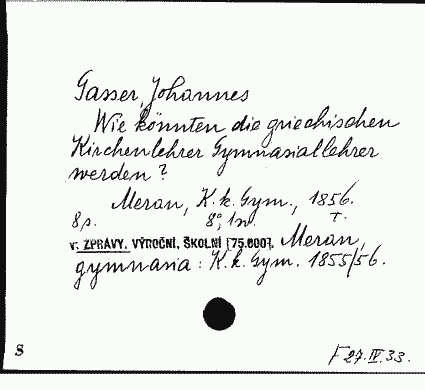 Gasser, Johannes
Wie könnten die griechischen
Kirchenlehrer Gymnasiallehrer
werden?
Meran, K. k. Gym., 1856.
8 s. 8°, 1 sv. T.
v: ZPRÁVY, VÝROČNÍ, ŠKOLNÍ [75.600]. Meran,
gymnasia: K. k. Gym. 1855/56.
S F 27.IV.33.